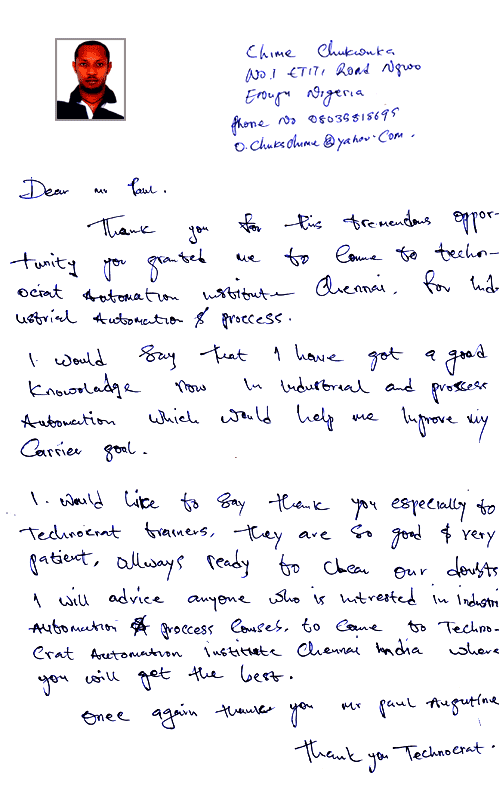 Chime Chukwuka
No. 1 ETITI Road Ngwo
Enugu Nigeria
Phone No 08035818695
O.Chukschime@yahoo.Com.
Dear mr Paul.
Thank you for this tremendous oppor-
tunity you granted me to Come to techon-
ocrat Automation institute Chennai. for Ind
ustrial Automation & proccess.
I. would Say that I have got a good
Knowoladge now in Industrial and prossess
Automation which would help me Improve my
Carrier goal.
I. would like to say thank you especially to
Technocrat trainers, they are so good & very
patient, allways ready to Clear our doubts
I will advice anyone who is intrested in Industri
Automation & proccess Courses. to Come to Techno-
Crat Automation institute Chennai India where
you will get the best.
Once again thank you Mr paul Augustine
Thank you Technocrat.